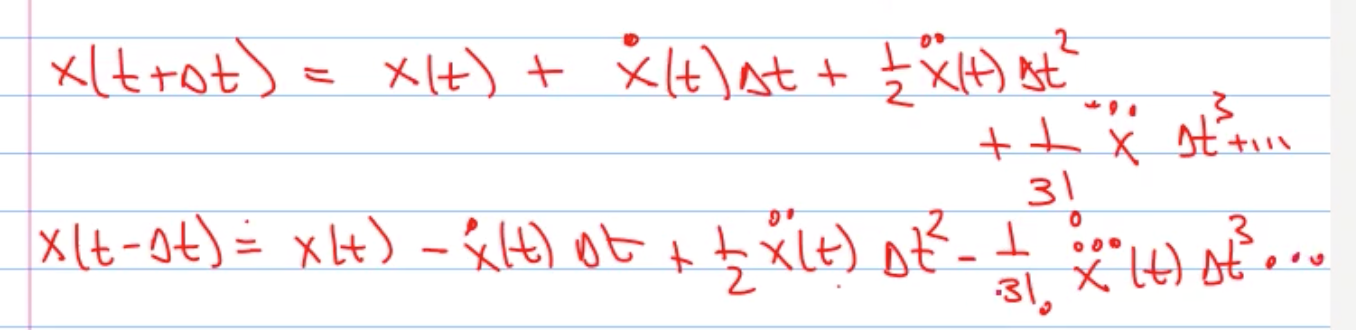 x(t+Δt) = x(t) + ẋ(t)Δt + ½ẍ(t)Δt²
+ 1/3! x⃛ Δt³+...
x(t-Δt) = x(t) - ẋ(t) Δt + ½ẍ(t) Δt² - 1/3! x⃛(t) Δt³...